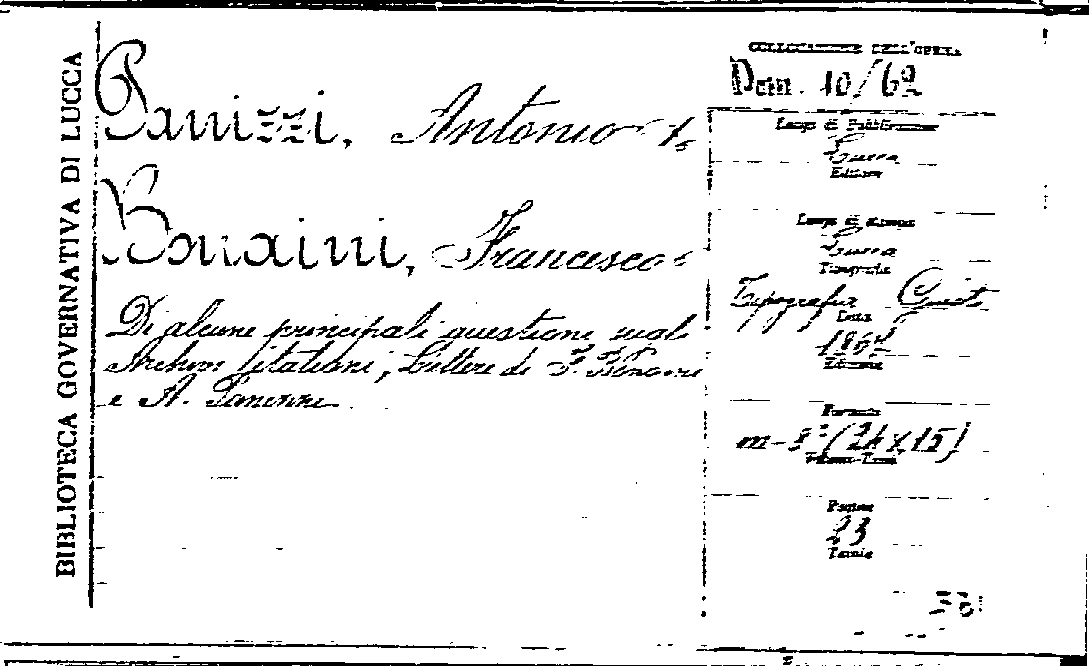 BIBLIOTECA GOVERNATIVA DI LUCCA
Panizzi, Antonio
Bonaini, Francesco
Di alcune principali questioni sugli
Archivi italiani, Lettere di F. Bonaini
e A. Panizzi
COLLOCAZIONE DELL'OPERA
10/62
Luogo di Pubblicazione
Lucca
Editore
Luogo di stampa
Lucca
Tipografia
Tipografia Giusti
Data
Edizione
Formato
m-8° (24x15)
Pagine
23
Tavole